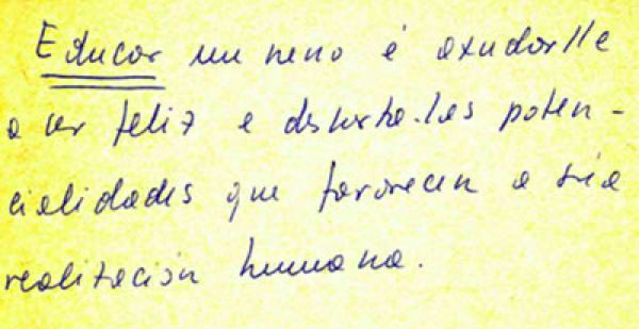 Educar un neno é axudarlle
a ser feliz e despertar-las poten-
cialidades que favorecen a súa
realización humana.